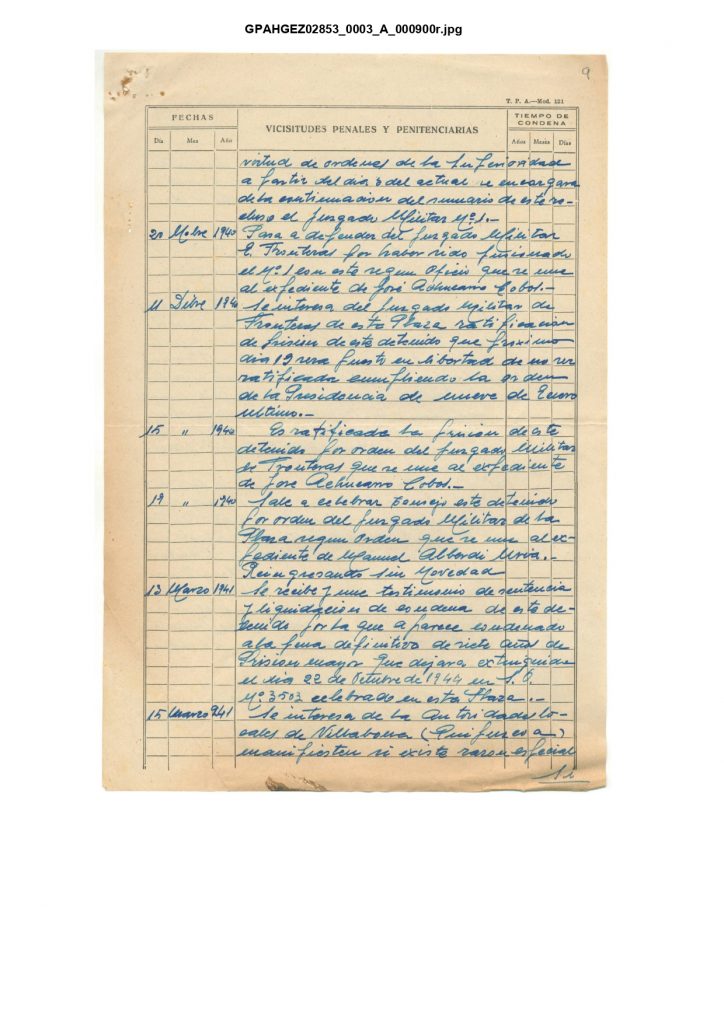 GPAHGEZ02853_0003_A_000900r.jpg
9
T. P. A.—Mod. 121
FECHAS
VICISITUDES PENALES Y PENITENCIARIAS
TIEMPO DE CONDENA
Día Mes Año
Años Meses Días
virtud de ordenes de la Superioridad
a partir del dia 8 del actual se encargara
de la continuacion del sumario de este re-
cluso el Juzgado Militar Nº 1.-
20 Nobre 1940 Pasa a depender del Juzgado Militar
E. Fronteras por haber sido fusionado
el Nº 1 con este segun oficio que se une
al expediente de José Achucarro Cobos.-
11 Dibre 1940 Se interesa del Juzgado Militar de
Fronteras de esta Plaza ratificacion
de prision de este detenido que proximo
dia 19 sera puesto en libertad de no ser
ratificada cumpliendo la orden
de la Presidencia de nueve de Enero
ultimo.-
15 " 1940 Es ratificada la prision de este
detenido por orden del Juzgado Militar
de Fronteras que se une al expediente
de José Achucarro Cobos.-
19 " 1940 Sale a celebrar Consejo este detenido
por orden del Juzgado Militar de la
Plaza segun orden que se une al ex-
pediente de Manuel Alberdi
Reingresando sin Novedad
13 Marzo 1941 Se recibe y une testimonio de sentencia
y liquidacion de condena de este de-
tenido por la que aparece condenado
a la pena definitiva de siete años de
Prision mayor que dejara extinguida
el dia 22 de Octubre de 1944 en S. O.
Nº 3503 celebrado en esta Plaza.-
15 Marzo 941 Se interesa de la Autoridades lo-
cales de Villabona (Guipuzcoa)
manifiesten si existe razon especial
Si